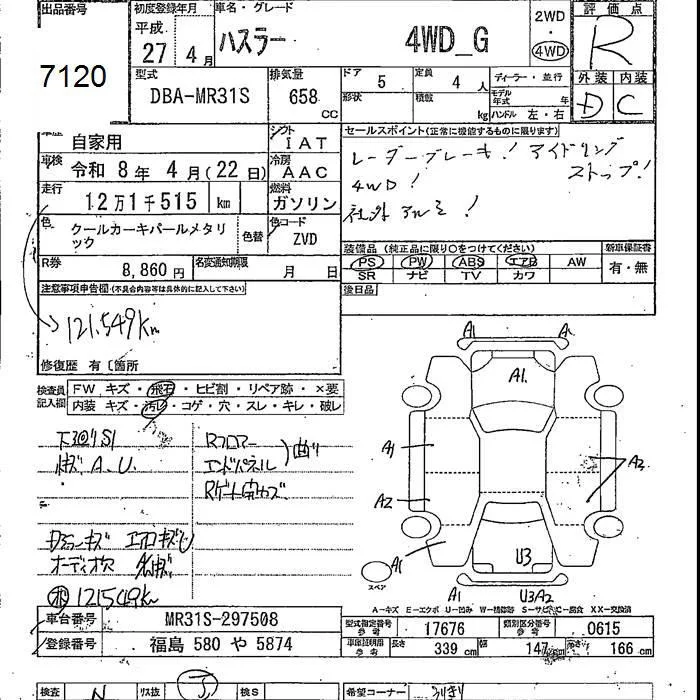 出品番号 初度登録年月 車名・グレード 2WD ・ 4WD 評価点
7120 平成 27年 4月 ハスラー 4WD_G R
型式 排気量 ドア 5 定員 4人 ディーラー・並行 外装 内装
DBA-MR31S 658 cc 形状 積載 kg モデル年式 年 ハンドル 左・右 D C
車歴 自家用 シフト IAT セールスポイント(正常に機能するものに限ります)
車検 令和 8年 4月(22日) 冷房 AAC レーダーブレーキ! アイドリング
ストップ!
走行 12万1千515 km 燃料 ガソリン 4WD!
社外アルミ!
色 クールカーキパールメタリック 色替 色コード ZVD
装備品(純正品に限り○をつけてください) 新車保証書
R券 8,860円 名変通知期限 月 日 PS PW ABS エアB AW 有・無
SR ナビ TV カワ
注意事項申告欄(不具合内容等は具体的に記入して下さい) 後日品
121,549km
修復歴 有〔箇所
検査員記入欄 FW キズ・飛石・ヒビ割・リペア跡・×要
内装 キズ・汚れ・コゲ・穴・スレ・キレ・破レ
下回りS1 Rフロアー
A.U. エンドパネル 曲り
オーディオ欠
121549km
A1 A
A1
A1 A2
A2
A1 U3
スペア A1 U3A2
A-キズ E-エクボ U-凹み W-補修跡 S-サビ C-腐食 XX-交換済
車台番号 MR31S-297508 型式指定番号 参考 17676 類別区分番号 参考 0615
登録番号 福島 580 や 5874 車検証明用 参考 長さ 339 cm 幅 147 cm 高さ 166 cm
検査 N リス抜 検S 希望コーナー